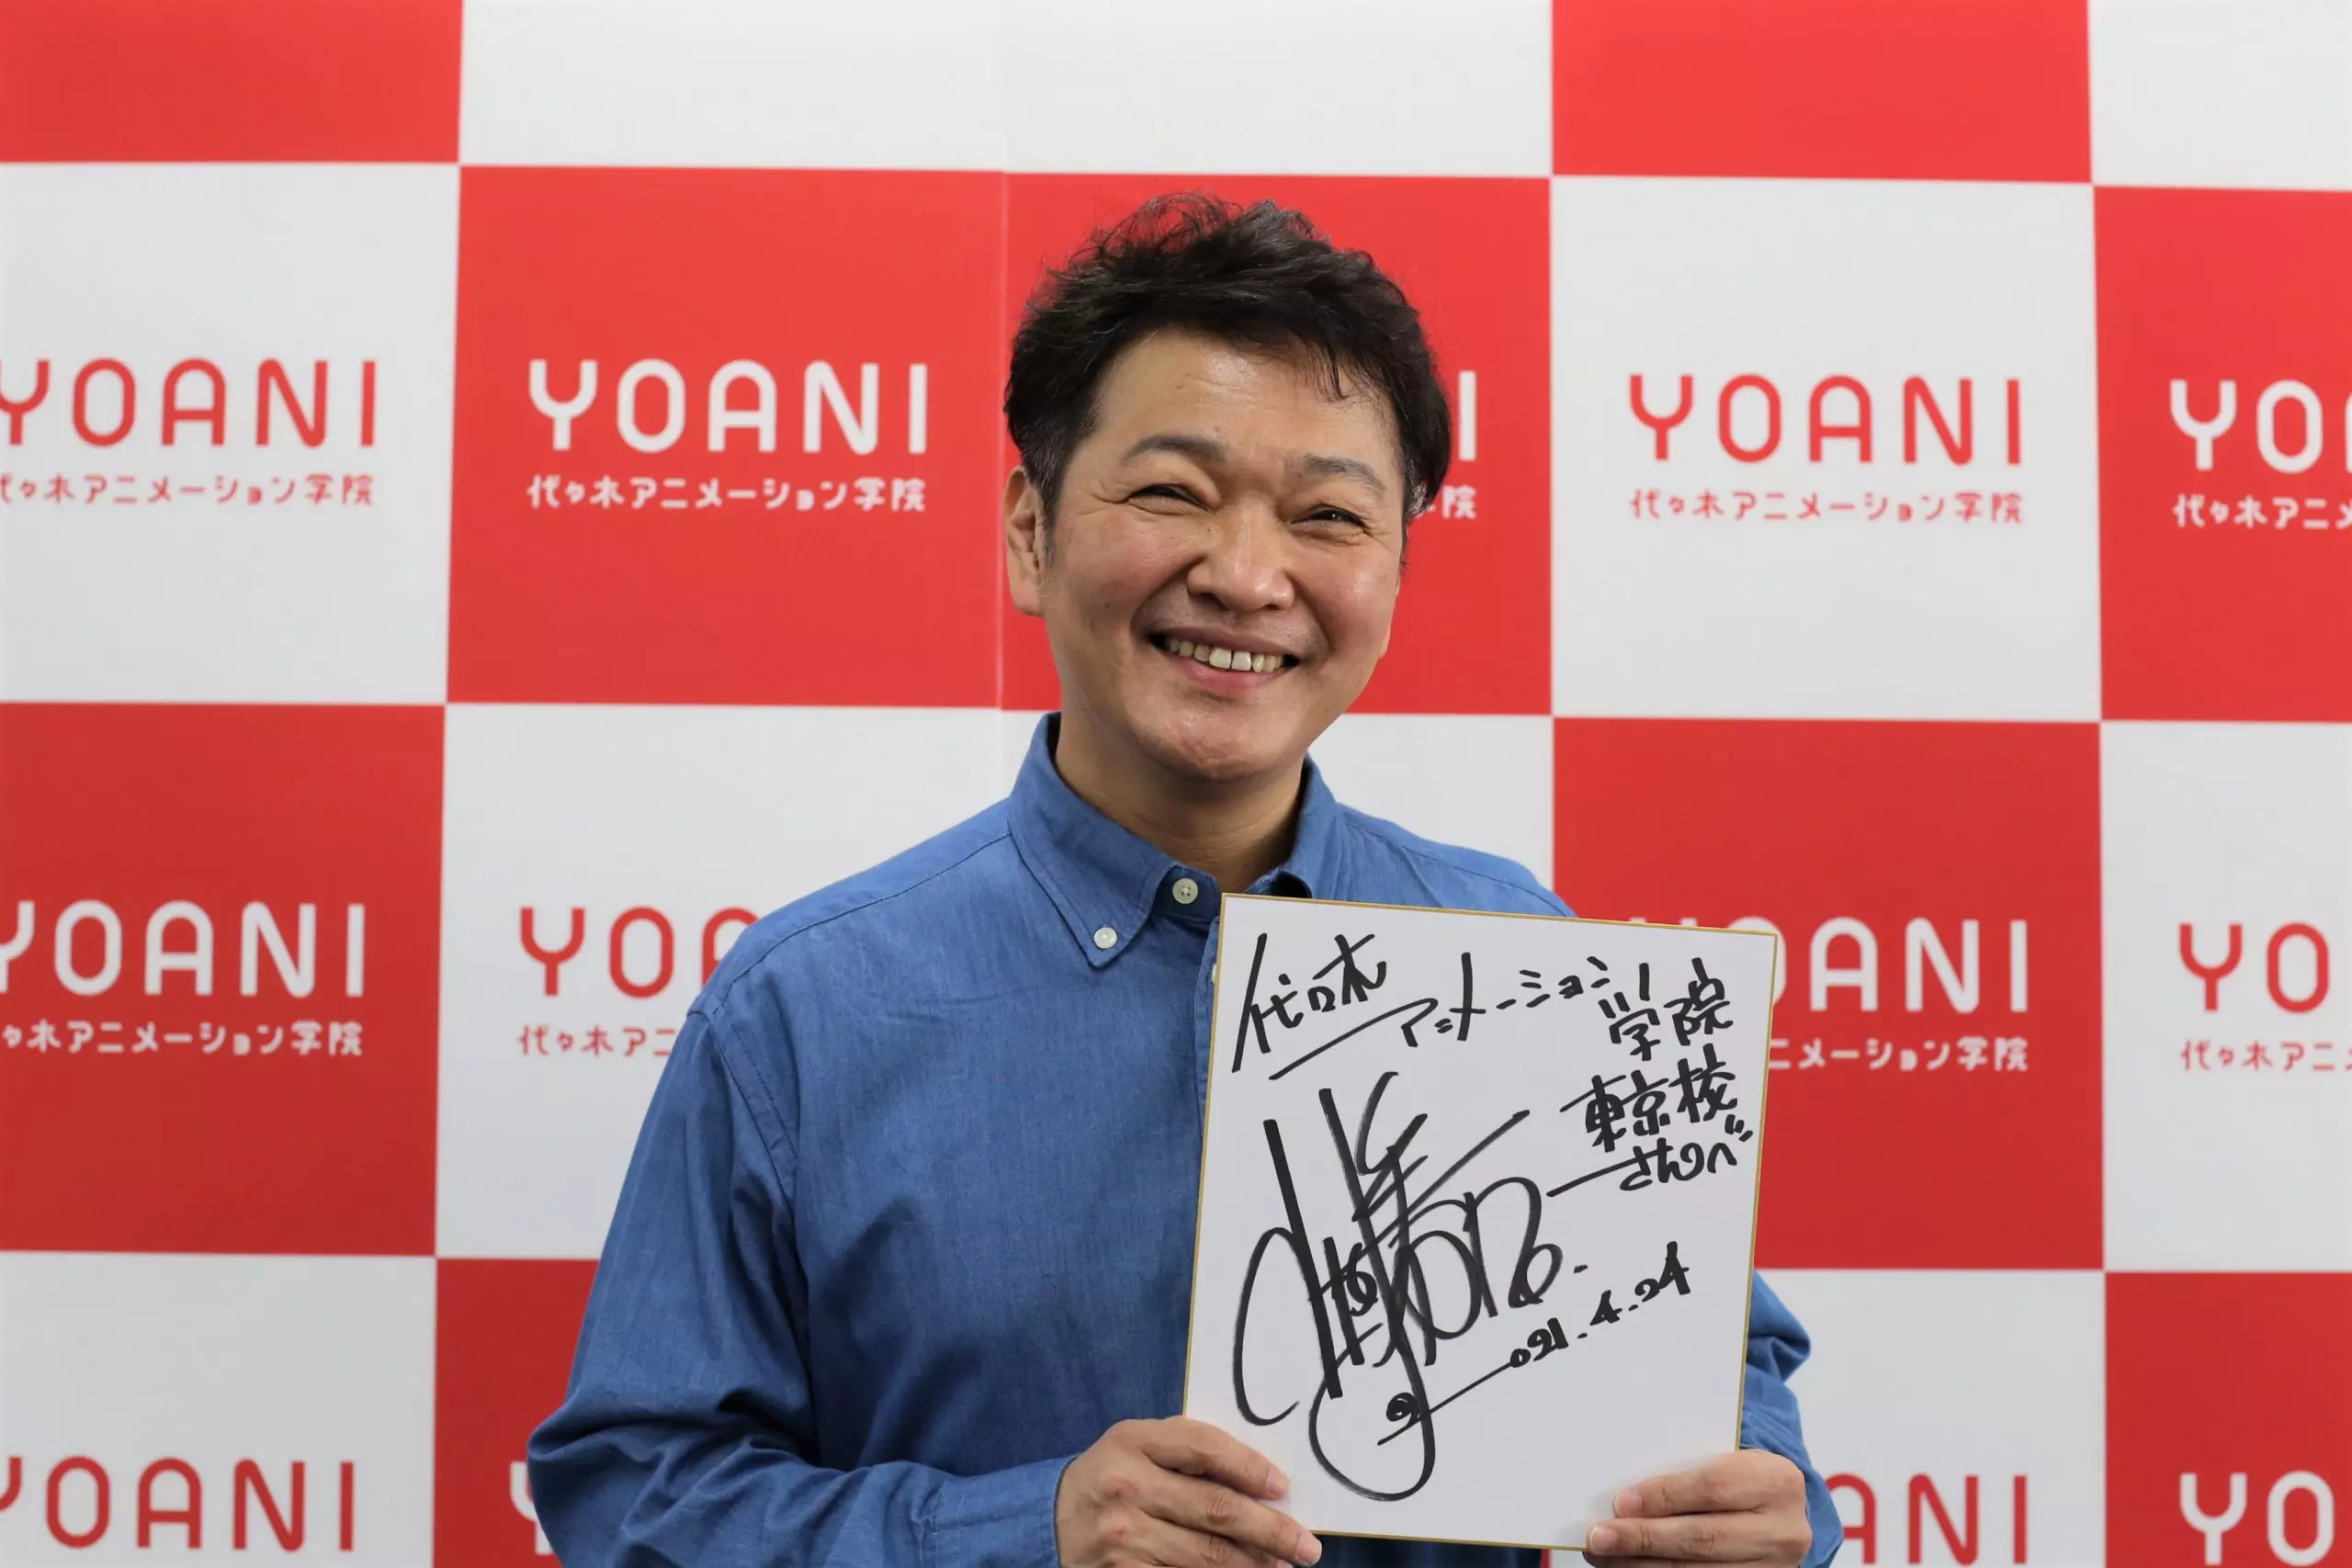 YOANI
YOANI
YOANI
YO
代々木アニメーション学院
代々木アニメーション学院
代々木アニメーション学院
代々木アニメ
YOANI
YOA
OANI
YO
代々木アニメーション学院
代々木アニ
ニメーション学院
代々木アニ
代々木
アニメーション
学院
東京校
さんへ
2021.4.24
YOANI
ANI
YO